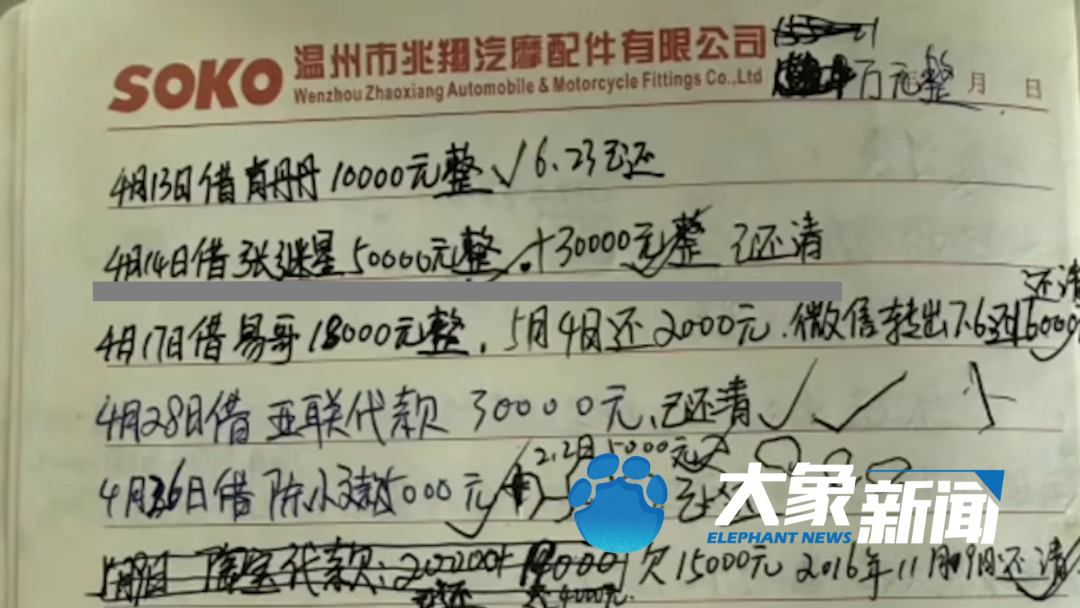 SOKO 温州市兆翔汽摩配件有限公司
Wenzhou Zhaoxiang Automobile & Motorcycle Fittings Co.,Ltd
万元整 月 日
4月13日借肖丹丹10000元整√6.23已还
4月14日借张继星50000元整.+30000元整 已还清
还清
4月17日借易哥18000元整,5月4日还2000元.微信转出7.6还16000
4月28日借亚联代款30000元、已还清√√
2.2月5000元
4月26日借陈小 5000元
大象新闻
ELEPHANT NEWS
代款: 欠15000元 2016年11月19日还清
4000元.